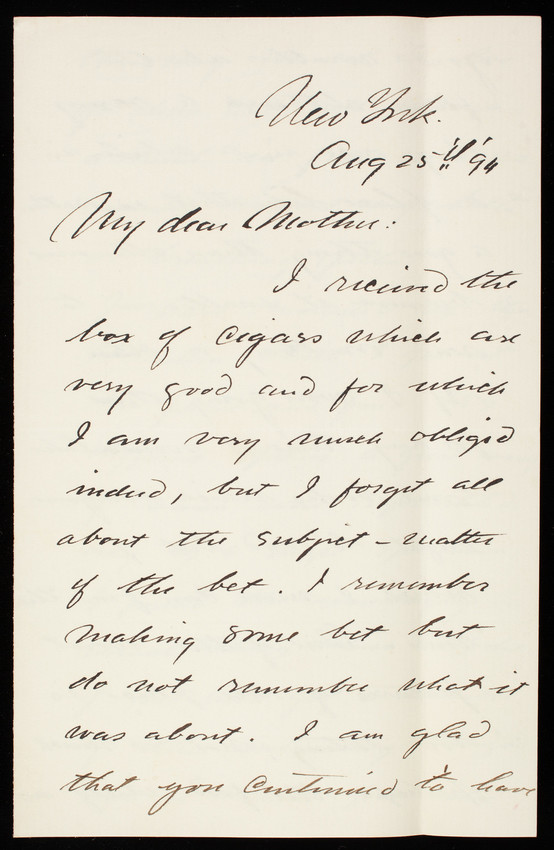 New York.
Aug 25th '94
My dear Mother:
I received the
box of cigars which are
very good and for which
I am very much obliged
indeed, but I forget all
about the subject-matter
of the bet. I remember
making some bet but
do not remember what it
was about. I am glad
that you continued to have